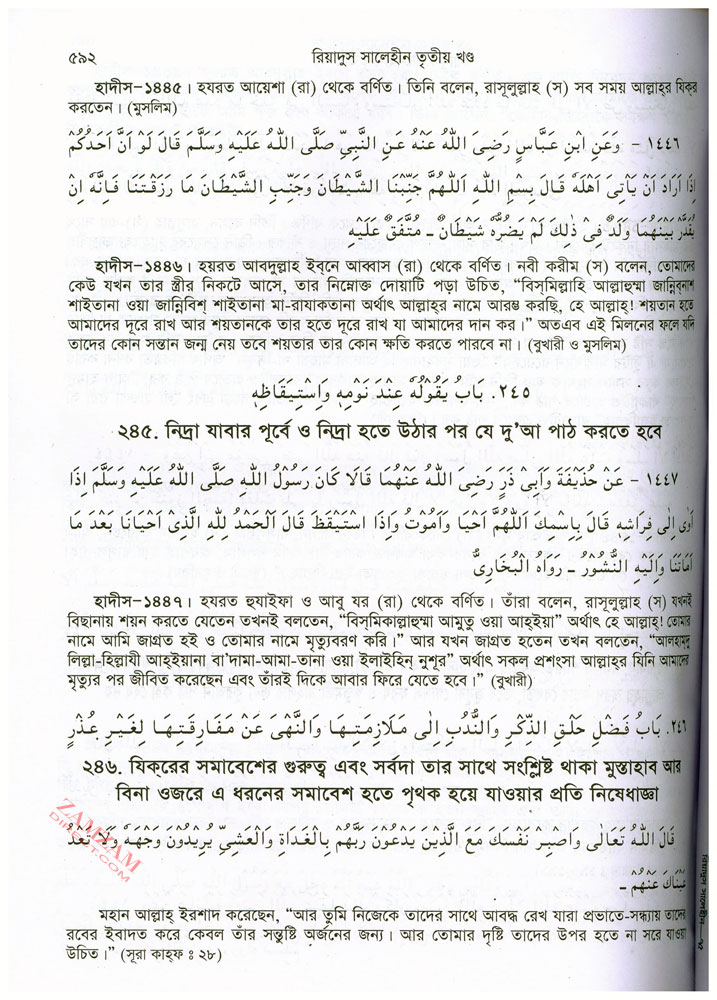 ৫৯২
রিয়াদুস সালেহীন তৃতীয় খণ্ড
হাদীস-১৪৪৫। হযরত আয়েশা (রা) থেকে বর্ণিত। তিনি বলেন, রাসূলুল্লাহ (স) সব সময় আল্লাহ্‌র যিক্‌র
করতেন। (মুসলিম)
١٤٤٦ - وَعَنِ ابْنِ عَبَّاسٍ رَضِىَ اللّٰهُ عَنْهُ عَنِ النَّبِىِّ صَلَّى اللّٰهُ عَلَيْهِ وَسَلَّمَ قَالَ لَوْ اَنَّ اَحَدَكُمْ
اِذَا اَرَادَ اَنْ يَأْتِىَ اَهْلَهٗ قَالَ بِسْمِ اللّٰهِ اَللّٰهُمَّ جَنِّبْنَا الشَّيْطَانَ وَجَنِّبِ الشَّيْطَانَ مَا رَزَقْتَنَا فَاِنَّهٗ اِنْ
يُقَدَّرْ بَيْنَهُمَا وَلَدٌ فِىْ ذٰلِكَ لَمْ يَضُرَّهٗ شَيْطَانٌ ـ مُتَّفَقٌ عَلَيْهِ
হাদীস-১৪৪৬। হযরত আবদুল্লাহ ইব্‌নে আব্বাস (রা) থেকে বর্ণিত। নবী করীম (স) বলেন, তোমাদের
কেউ যখন তার স্ত্রীর নিকটে আসে, তার নিম্নোক্ত দোয়াটি পড়া উচিত, “বিস্‌মিল্লাহি আল্লাহুম্মা জান্নিব্‌নাশ
শাইতানা ওয়া জান্নিবিশ্ শাইতানা মা-রাযাকতানা অর্থাৎ আল্লাহ্‌র নামে আরম্ভ করছি, হে আল্লাহ! শয়তান হতে
আমাদের দূরে রাখ আর শয়তানকে তার হতে দূরে রাখ যা আমাদের দান কর।” অতএব এই মিলনের ফলে যদি
তাদের কোন সন্তান জন্ম নেয় তবে শয়তার তার কোন ক্ষতি করতে পারবে না। (বুখারী ও মুসলিম)
٢٤٥. بَابُ يَقُوْلُهٗ عِنْدَ نَوْمِهٖ وَاسْتِيْقَاظِهٖ
২৪৫. নিদ্রা যাবার পূর্বে ও নিদ্রা হতে উঠার পর যে দু’আ পাঠ করতে হবে
١٤٤٧ - عَنْ حُذَيْفَةَ وَاَبِىْ ذَرٍّ رَضِىَ اللّٰهُ عَنْهُمَا قَالَا كَانَ رَسُوْلُ اللّٰهِ صَلَّى اللّٰهُ عَلَيْهِ وَسَلَّمَ اِذَا
اَوٰى اِلٰى فِرَاشِهٖ قَالَ بِاسْمِكَ اَللّٰهُمَّ اَحْيَا وَاَمُوْتُ وَاِذَا اسْتَيْقَظَ قَالَ اَلْحَمْدُ لِلّٰهِ الَّذِىْ اَحْيَانَا بَعْدَ مَا
اَمَاتَنَا وَاِلَيْهِ النُّشُوْرُ ـ رَوَاهُ الْبُخَارِىُّ
হাদীস-১৪৪৭। হযরত হুযাইফা ও আবু যর (রা) থেকে বর্ণিত। তাঁরা বলেন, রাসূলুল্লাহ (স) যখনই
বিছানায় শয়ন করতে যেতেন তখনই বলতেন, “বিস্‌মিকাল্লাহুম্মা আমুতু ওয়া আহ্‌ইয়া” অর্থাৎ হে আল্লাহ! তোমার
নামে আমি জাগ্রত হই ও তোমার নামে মৃত্যুবরণ করি।” আর যখন জাগ্রত হতেন তখন বলতেন, “আলহামদু
লিল্লা-হিল্লাযী আহ্‌ইয়ানা বা’দামা-আমা-তানা ওয়া ইলাইহিন্ নুশূর” অর্থাৎ সকল প্রশংসা আল্লাহ্‌র যিনি আমাদের
মৃত্যুর পর জীবিত করেছেন এবং তাঁরই দিকে আবার ফিরে যেতে হবে।” (বুখারী)
٢٤٦. بَابُ فَضْلِ حَلَقِ الذِّكْرِ وَالنُّدُبِ اِلٰى مَلَازَمَتِهَا وَالنَّهْىِ عَنْ مَفَارِقَتِهَا لِغَيْرِ عُذْرٍ
২৪৬. যিক্‌রের সমাবেশের গুরুত্ব এবং সর্বদা তার সাথে সংশ্লিষ্ট থাকা মুস্তাহাব আর
বিনা ওজরে এ ধরনের সমাবেশ হতে পৃথক হয়ে যাওয়ার প্রতি নিষেধাজ্ঞা
قَالَ اللّٰهُ تَعَالٰى وَاصْبِرْ نَفْسَكَ مَعَ الَّذِيْنَ يَدْعُوْنَ رَبَّهُمْ بِالْغَدَاةِ وَالْعَشِىِّ يُرِيْدُوْنَ وَجْهَهٗ وَلَا تَعْدُ
عَيْنَاكَ عَنْهُمْ ـ
মহান আল্লাহ্ ইরশাদ করেছেন, “আর তুমি নিজেকে তাদের সাথে আবদ্ধ রেখ যারা প্রভাতে-সন্ধ্যায় তাদের
রবের ইবাদত করে কেবল তাঁর সন্তুষ্টি অর্জনের জন্য। আর তোমার দৃষ্টি তাদের উপর হতে না সরে যাওয়া
উচিত।” (সূরা কাহ্‌ফ : ২৮)
রিয়াদুস সালেহীন—৭২
ZAMZAM
DIRECT.COM